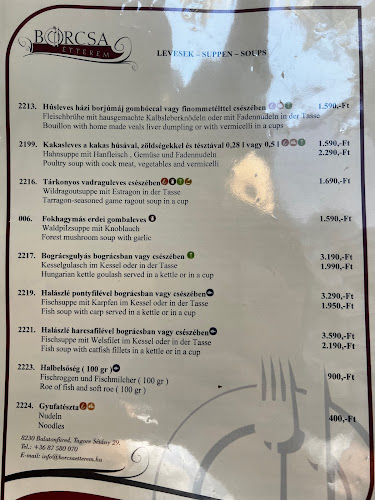 BORCSA
ÉTTEREM
LEVESEK – SUPPEN – SOUPS
2213. Húsleves házi borjúmáj gombóccal vagy finommetélttel csészében 1.590,-Ft
Fleischbrühe mit hausgemachte Kalbsleberknödeln oder mit Fadennudeln in der Tasse
Bouillon with home made veals liver dumpling or with vermicelli in a cups
2199. Kakasleves a kakas húsával, zöldségekkel és tésztával 0,28 l vagy 0,5 l 1.590,-Ft
Hahnsuppe mit Hanfleisch , Gemüse und Fadennudeln 2.290,-Ft
Poultry soup with cock meat, vegetables and vermicelli
2216. Tárkonyos vadraguleves csészében 1.690,-Ft
Wildragoutsuppe mit Estragon in der Tasse
Tarragon-seasoned game ragout soup in a cup
006. Fokhagymás erdei gombaleves 1.590,-Ft
Waldpilzsuppe mit Knoblauch
Forest mushroom soup with garlic
2217. Bográcsgulyás bográcsban vagy csészében 3.190,-Ft
Kesselgulasch im Kessel oder in der Tasse 1.990,-Ft
Hungarian kettle goulash served in a kettle or in a cup
2219. Halászlé pontyfilével bográcsban vagy csészében 3.290,-Ft
Fischsuppe mit Karpfen im Kessel oder in der Tasse 1.950,-Ft
Fish soup with carp served in a kettle or in a cup
2221. Halászlé harcsafilével bográcsban vagy csészében 3.590,-Ft
Fischsuppe mit Welsfilet im Kessel oder in der Tasse 2.190,-Ft
Fish soup with catfish fillets in a kettle or in a cup
2223. Halbelsőség ( 100 gr ) 900,-Ft
Fischroggen und Fischmilcher ( 100 gr )
Roe of fish and soft roe ( 100 gr )
2224. Gyufatészta 400,-Ft
Nudeln
Noodles
8230 Balatonfüred, Tagore Sétány 29.
Tel.: +36 87 580 070
E-mail: info@borcsaetterem.hu